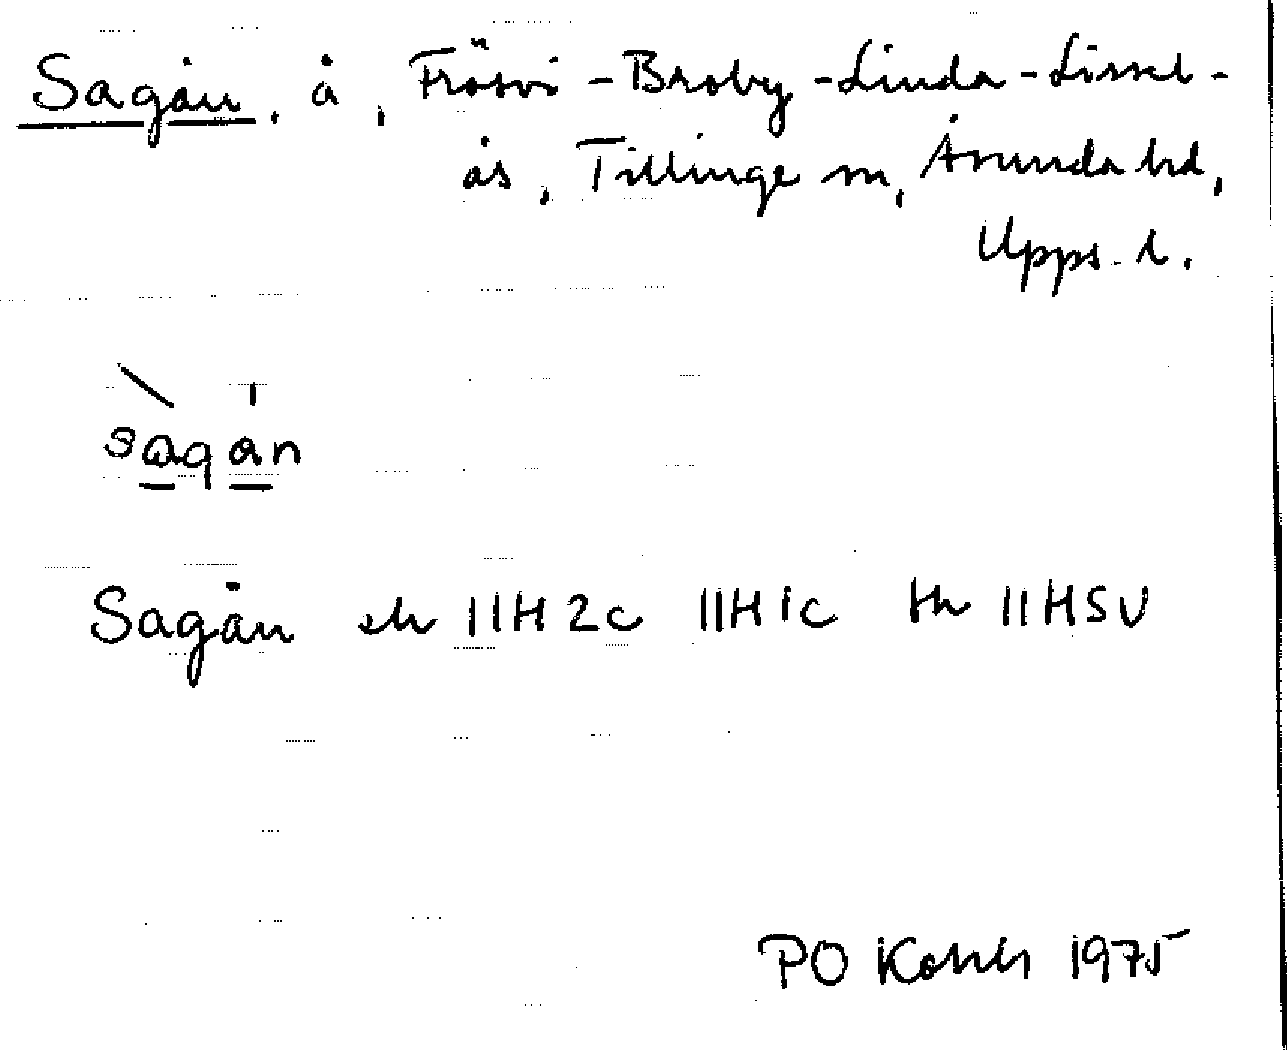 Sagån, å, Frösvi - Broby - Linda - Lissel-
ås, Tillinge sn, Åsunda hd,
Upps. l.
sagån
Sagån ek 11H 2c 11H 1c tk 11H SV
PO 1975